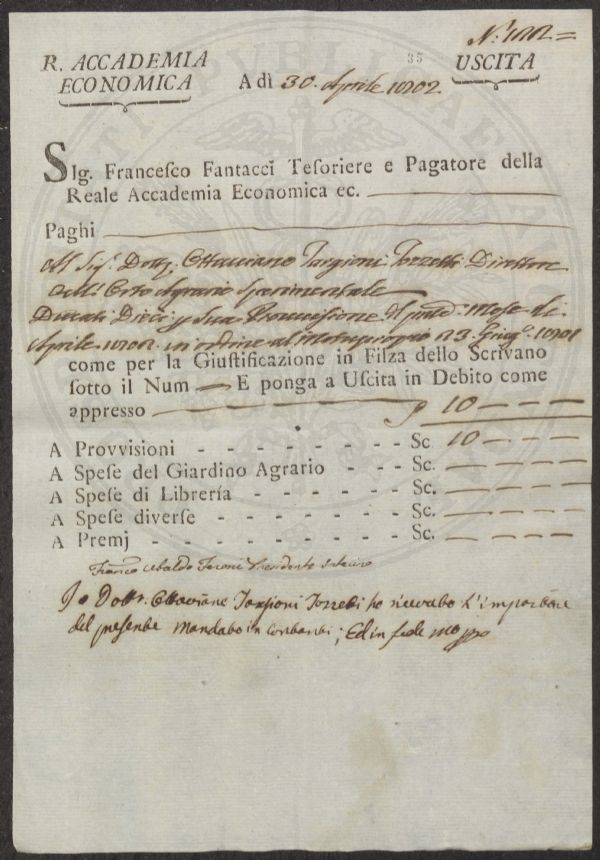 N.
R. ACCADEMIA 35 USCITA
ECONOMICA A dì 30. Aprile 1802
SIg. Francesco Fantacci Tesoriere e Pagatore della
Reale Accademia Economica ec.
Paghi
Al Sig. Dott. Ottaviano Targioni Tozzetti Direttore
dell'Orto Agrario Sperimentale
Ducati Dieci p Sua Provvisione d. Mese di
Aprile 1802. in ordine al Motuproprio 1801
come per la Giustificazione in Filza dello Scrivano
sotto il Num — E ponga a Uscita in Debito come
appresso 10 — — —
A Provvisioni - - - - - - - - Sc. 10 — — —
A Spese del Giardino Agrario - - - Sc. — — — —
A Spese di Libreria - - - - - - - Sc. — — — —
A Spese diverse - - - - - - - - Sc. — — — —
A Premj - - - - - - - - - - Sc. — — — —
Franco Ubaldo Feroni Presidente Interino
Io Dottr. Ottaviano Targioni Tozzetti ho ricevuto l'importare
del presente mandato in contanti; Ed in fede mo pp